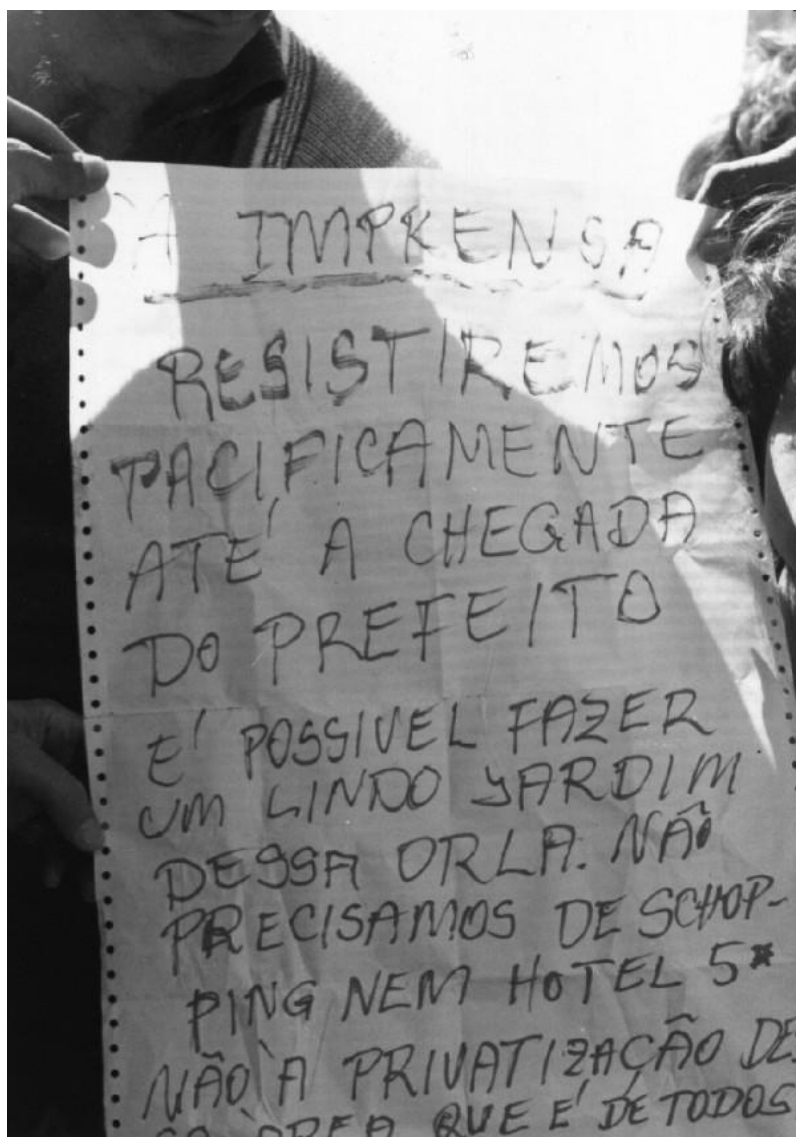 À IMPRENSA
RESISTIREMOS
PACIFICAMENTE
ATÉ A CHEGADA
DO PREFEITO
É POSSIVEL FAZER
UM LINDO JARDIM
DESSA ORLA. NÃO
PRECISAMOS DE SCHOP-
PING NEM HOTEL 5*
NÃO À PRIVATIZAÇÃO DES
SA ÁREA QUE É DE TODOS